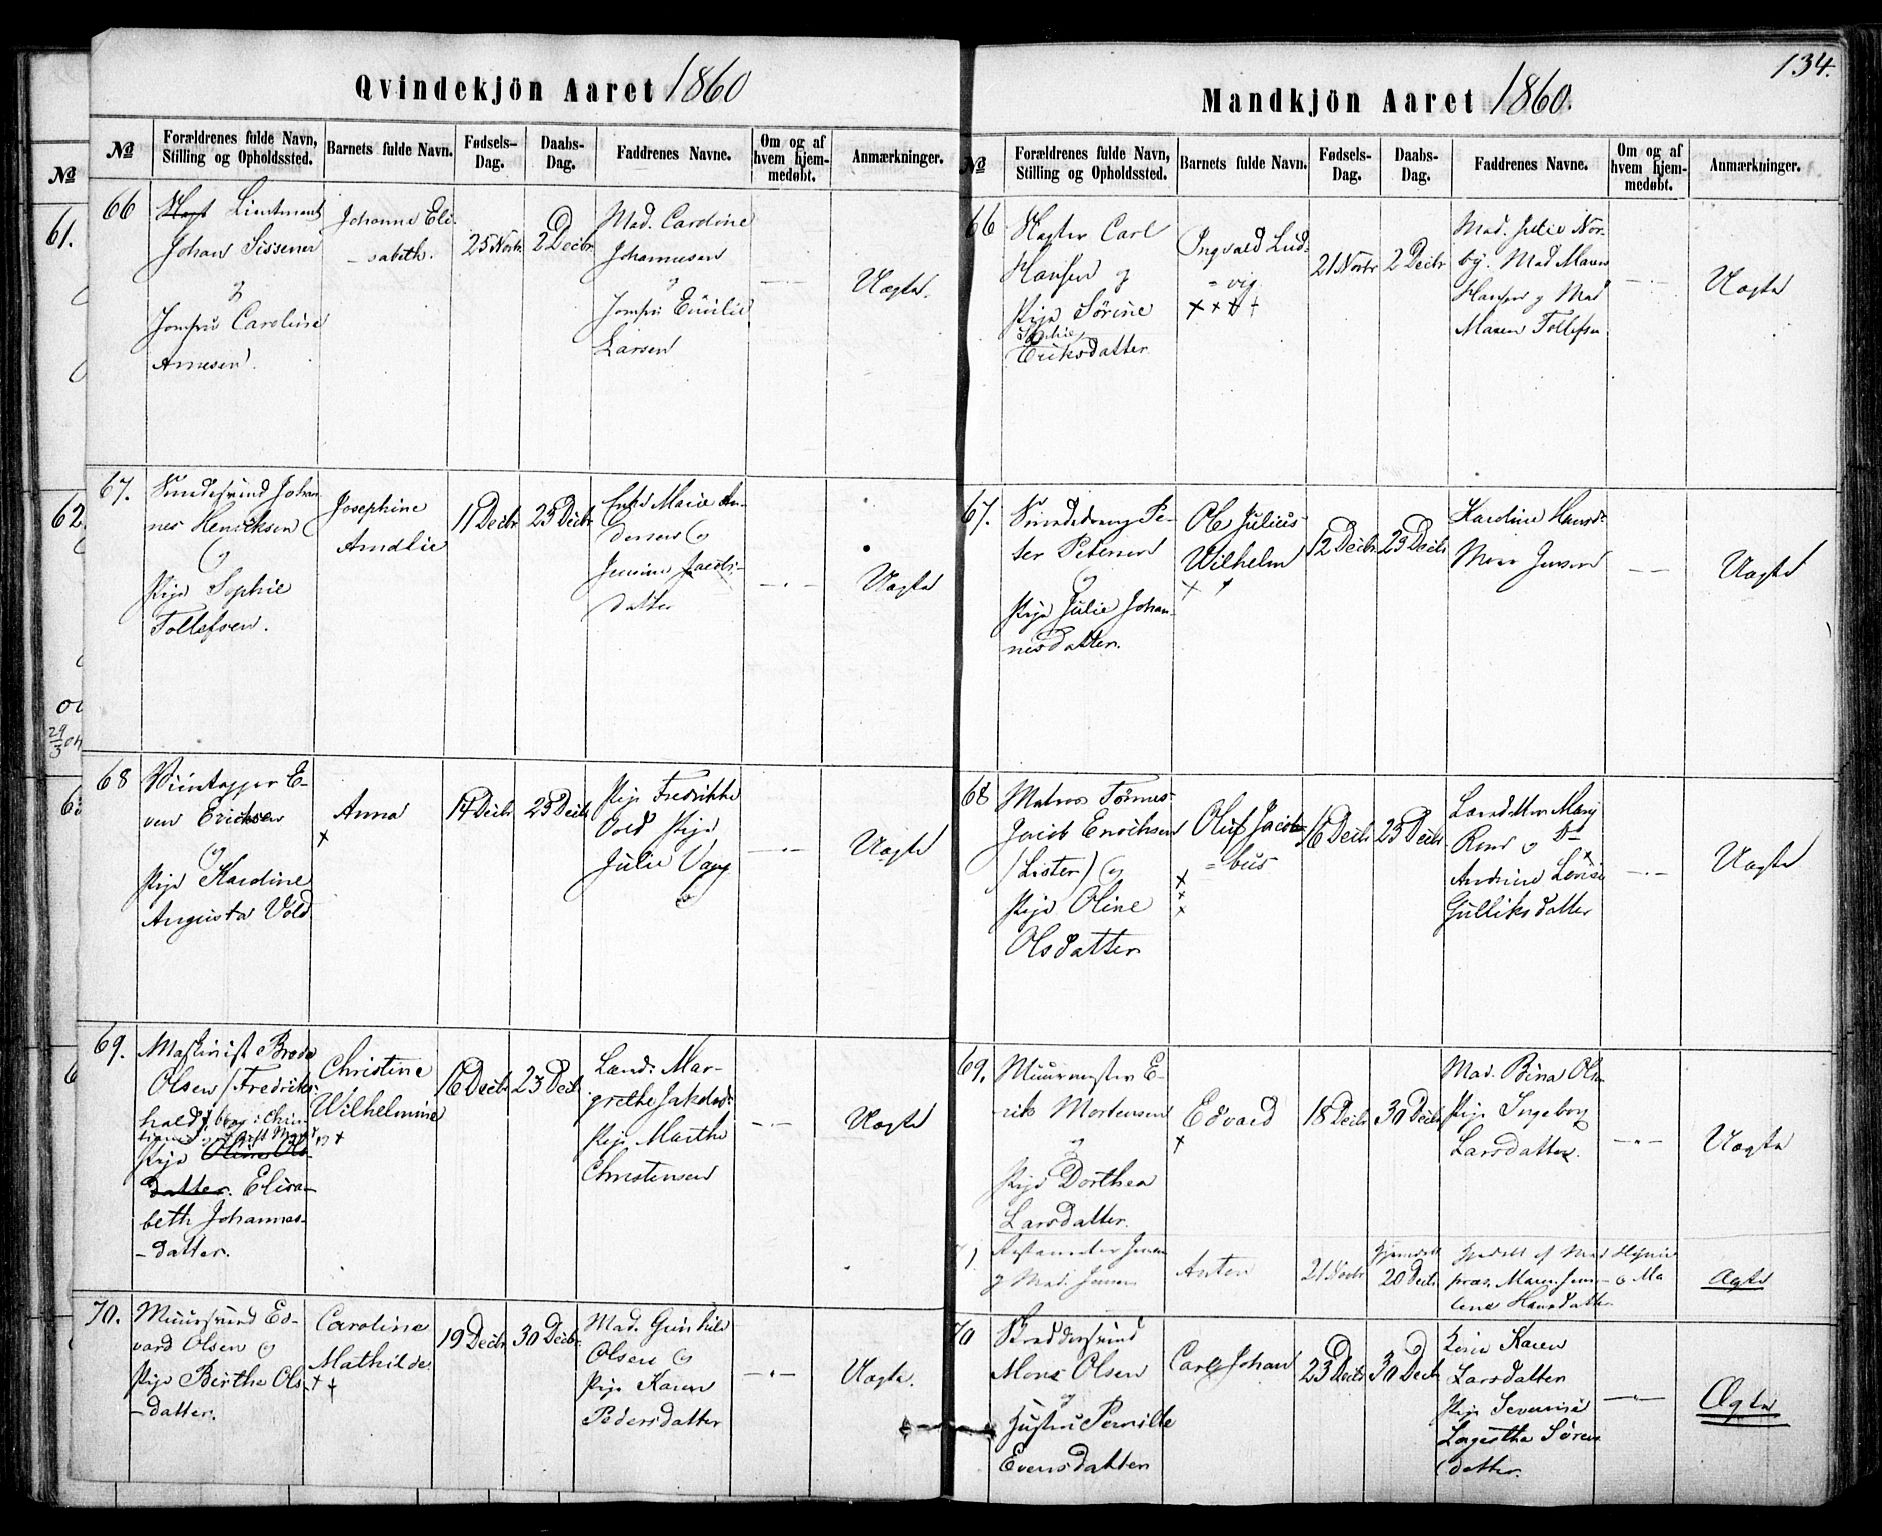 134.
Qvindekjön Aaret 1860
№
Forældrenes fulde Navn, Stilling og Opholdssted.
Barnets fulde Navn.
Fødsels-Dag.
Daabs-Dag.
Faddrenes Navne.
Om og af hvem hjem-medøbt.
Anmærkninger.
66
Lieutmant
Johan Sissener
og
Jomfru Caroline
Arnesen.
Johanne Eli-
sabeth.
25 Novbr
2 Decbr
Mad. Caroline
Johannesen
og
Jomfru Emilie
Larsen
Uægte.
67.
Johan-
nes Henriksen
og
Pige Sophie
Tollefsen.
Josephine
Amalie
11 Decbr
23 Decbr
Enke Marie An-
dersen og
Jensine Jacobs-
datter
Uægte
68
Viintapper E-
ven Ericksen
og
Pige Karoline
Augusta Vold
Anna
14 Decbr
23 Decbr
Pige Fredrikke
Vold Pige
Julie Vang
Uægte
69.
Maskinist
Olsen / Fredriks-
hald
Pige Oline Ols-
datter. Elisa-
beth Johannes-
datter.
Christine
Wilhelmine
16 Decbr
23 Decbr
Mar-
grethe Jakobsd:
Pige Marthe
Christensen
Uægte
70.
Muursvend Ed-
vard Olsen og
Pige Birthe Ols-
datter.
Caroline
Mathilde
19 Decbr
30 Decbr
Mad. Gunhild
Olsen og
Pige Karen
Pedersdatter
Uægte.
Mandkjön Aaret 1860.
№
Forældrenes fulde Navn, Stilling og Opholdssted.
Barnets fulde Navn.
Fødsels-Dag.
Daabs-Dag.
Faddrenes Navne.
Om og af hvem hjem-medøbt.
Anmærkninger.
66
Carl
Hansen og
Pige Sørine
Sophie
Eriksdatter
Ingvald Lud-
vig
21 Novbr
2 Decbr
Mad. Julie Nor-
by. Mad Maren
Hansen og Mad
Maren Tollefsen
Uægte
67.
Pe-
ter Petersen
og
Pige Julie Johan-
nesdatter.
Ole Julius
Wilhelm
12 Decbr
23 Decbr
Karoline Hansd:
Jensen
Uægte
68
Matros Tønnes
Jacob Enochsen
(Lister) og
Pige Oline
Olsdatter
Oluf Jacob-
bus
16 Decbr
23 Decbr
og Do
Andrine Lovise
Gulliksdatter
Uægte
69.
Muurmester E-
rik Mortensen
og
Pige Dorthea
Larsdatter.
Edvard
18 Decbr
30 Decbr
Mad. Bina Olsen
Pige Ingeborg
Larsdatter.
Uægte
Jensen
og Mad. Jensen
Anton
21 Novbr
hjemdøbt
20 Decbr
Ægte
70
Skræddersvend
Mons Olsen
og
Hustru Pernille
Evensdatter
Carl Johan
23 Decbr
30 Decbr
Karen
Larsdatter
Pige Severine
Sørens
datter.
Ægte